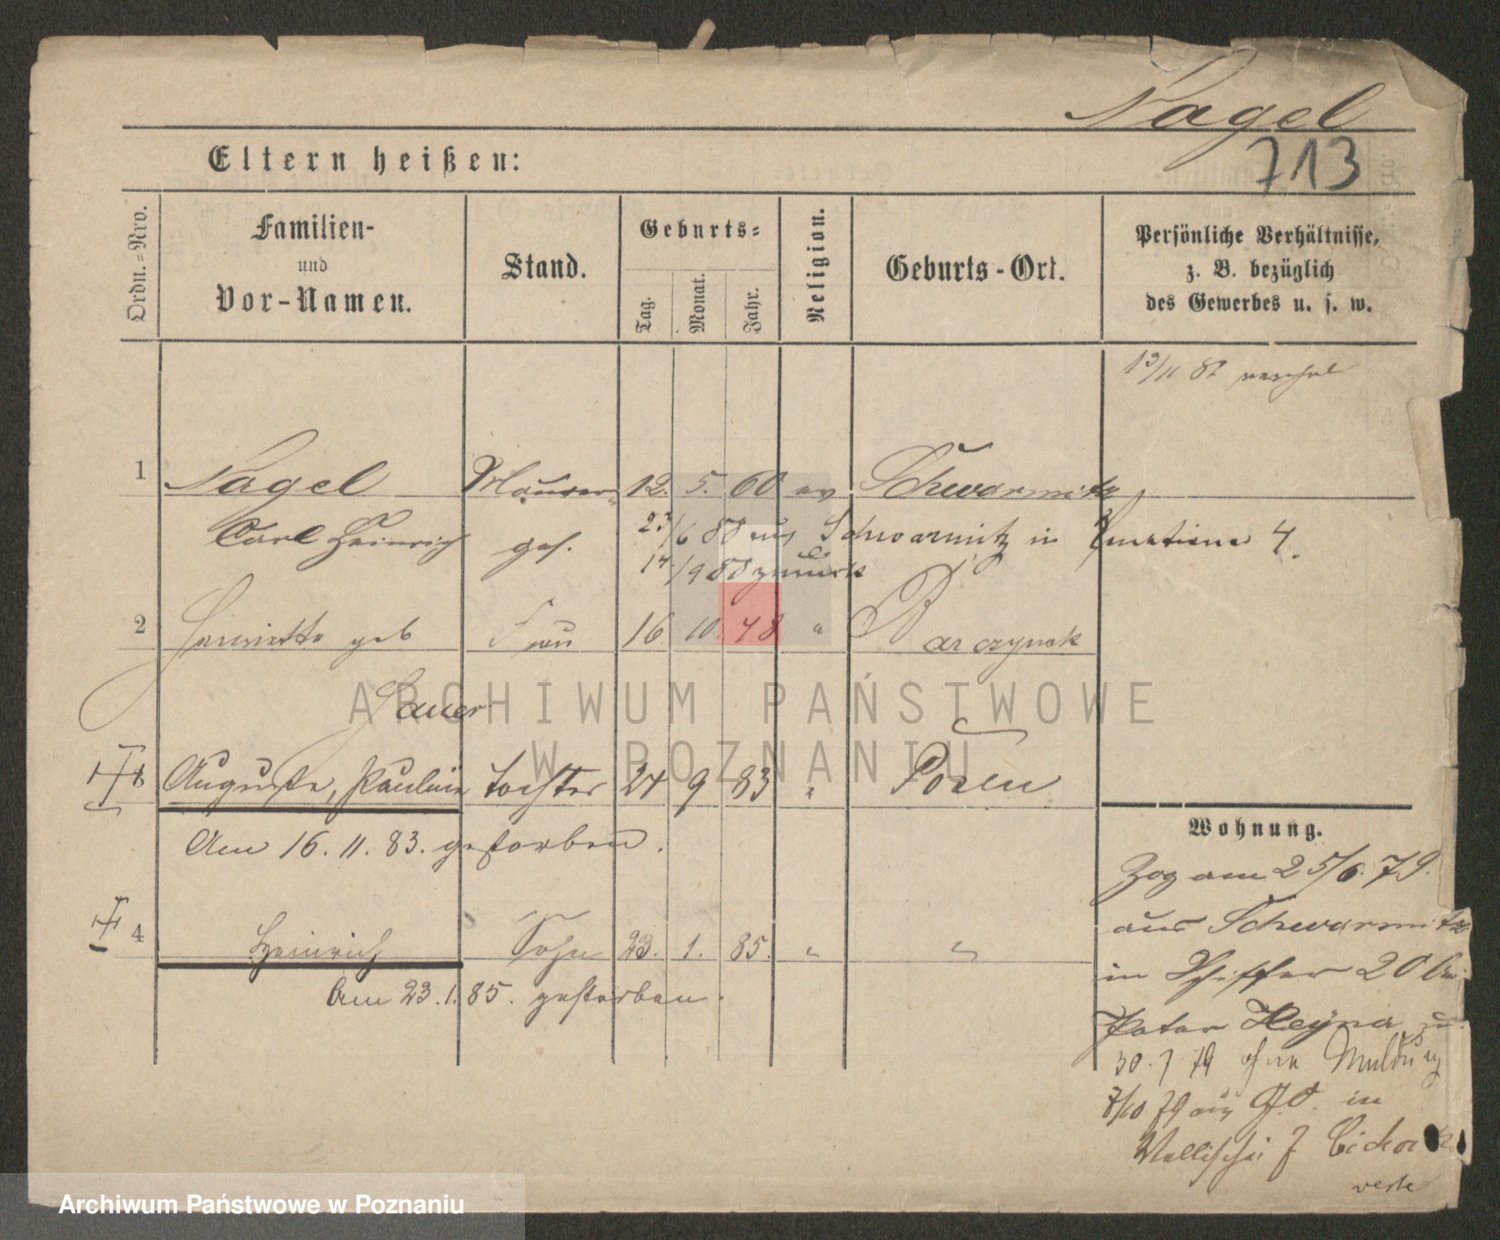 Nagel
713
Eltern heißen:
Ordn.-Nro.
Familien-
und
Vor-Namen.
Stand.
Geburts-
Tag.
Monat.
Jahr.
Religion.
Geburts-Ort.
Persönliche Verhältnisse,
z. B. bezüglich
des Gewerbes u. s. w.
13/11 82
1 Nagel Maurer 12. 5. 60 ev Schwarmitz
Carl Heinrich ges. 23/6 80 aus Schwarmitz in 4.
14/9 80 zurück
2 Henriette geb Frau 16. 10. 48 "
Sauer
3 Auguste, Pauline Tochter 24 9 83 " Posen
Am 16. 11. 83. gestorben.
4 Heinrich Sohn 23. 1. 85. " "
Am 23. 1. 85. gestorben.
Wohnung.
Zog am 25/6. 79.
aus Schwarmitz
in 20
Peter Heyna
30. 7 79 ohne Meldung
7/10 79 aus G.O. in
Wallischei 7
verte
ARCHIWUM PAŃSTWOWE
W POZNANIU
Archiwum Państwowe w Poznaniu